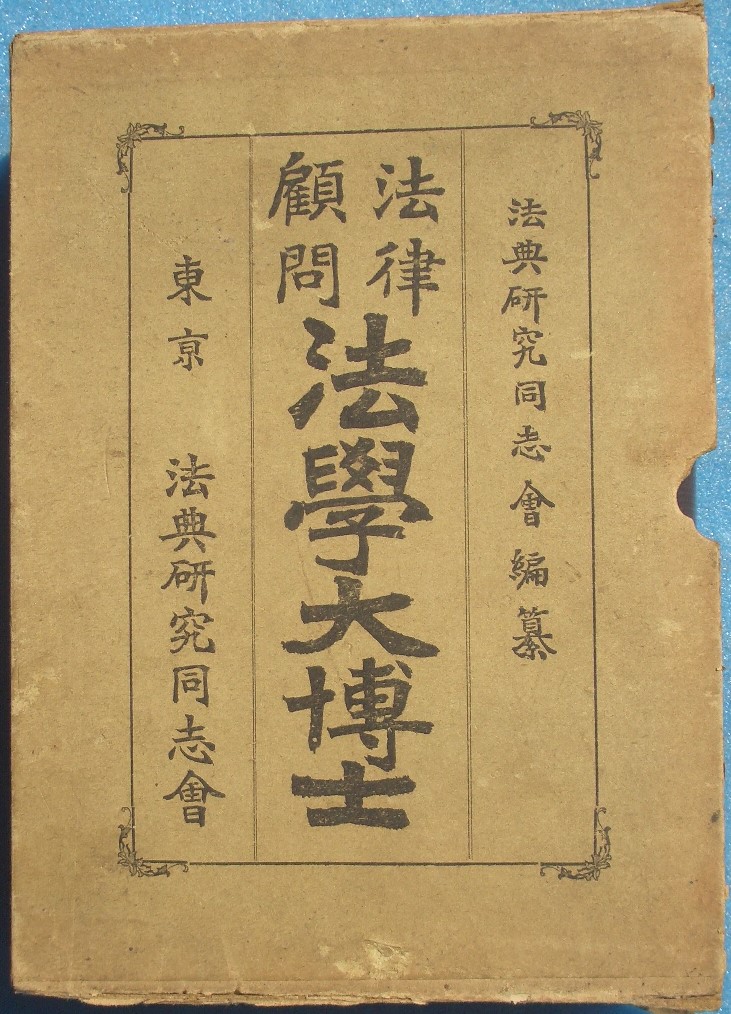 法典研究同志會編纂
法律
顧問
法學大博士
東京 法典研究同志會